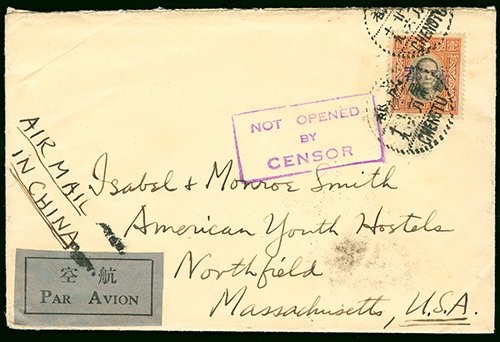 CHENGTU
CHENGTU
NOT OPENED
BY
CENSOR
AIR MAIL
IN CHINA
Isabel & Monroe Smith
American Youth Hostels
Northfield
Massachusetts, U.S.A.
空航
PAR AVION